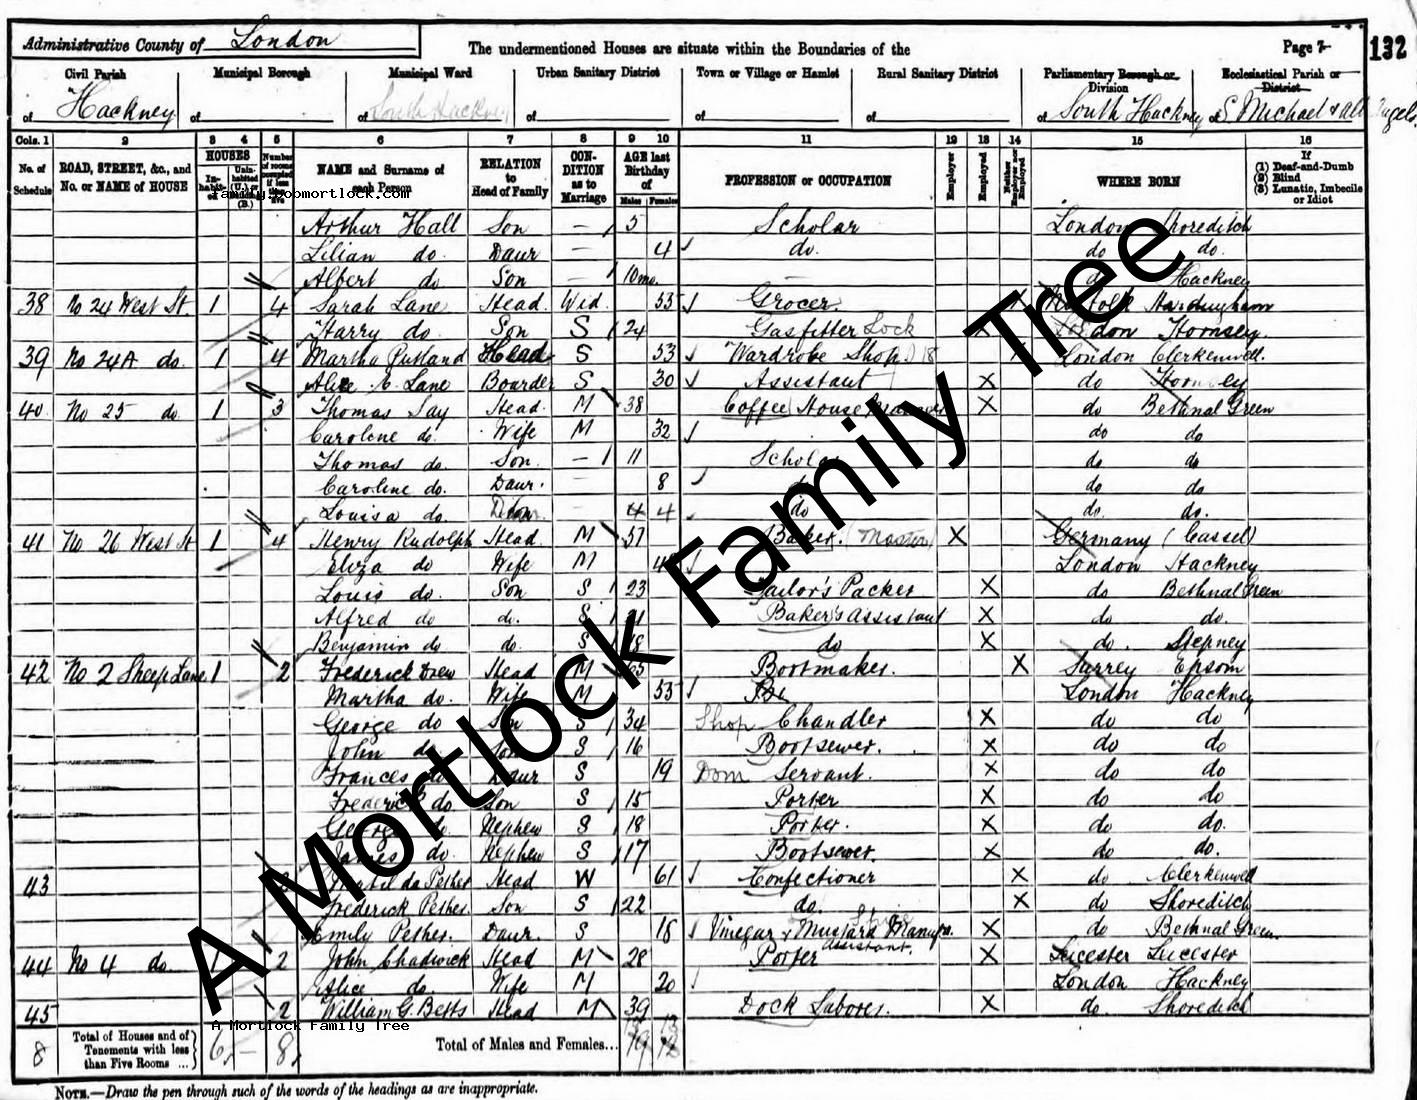 Administrative County of London
The undermentioned Houses are situate within the Boundaries of the
Page 7
132
Civil Parish Municipal Borough Municipal Ward Urban Sanitary District Town or Village or Hamlet Rural Sanitary District Parliamentary Borough or Division Ecclesiastical Parish or District
of Hackney of of South Hackney of of of of South Hackney of S. Michael & All Angels
Cols. 1 2 3 4 5 6 7 8 9 10 11 12 13 14 15 16
No. of Schedule ROAD, STREET, &c., and No. or NAME of HOUSE HOUSES Inhabited Uninhabited (U.) or Building (B.) Number of rooms occupied if less than five NAME and Surname of each Person RELATION to Head of Family CONDITION as to Marriage AGE last Birthday of Males Females PROFESSION or OCCUPATION Employer Employed Neither Employer nor Employed WHERE BORN If (1) Deaf-and-Dumb (2) Blind (3) Lunatic, Imbecile or Idiot
Arthur Hall Son – 5 Scholar London Shoreditch
Lilian do. Daur – 4 do. do do.
Albert do Son – 10mo. do Hackney
38 No 24 West St. 1 4 Sarah Lane Head Wid. 55 Grocer. Norfolk
Harry do. Son S 24 Gasfitter Lock London Hornsey
39 No 24A do. 1 4 Martha Rutland Head S 53 Wardrobe Shop London Clerkenwell.
Alice C. Lane Boarder S 30 Assistant X do Hornsey
40 No 25 do 1 3 Thomas Say Head M 38 Coffee House Manager X do Bethnal Green
Caroline do. Wife M 32 do do
Thomas do. Son. – 11 Scholar do do
Caroline do. Daur. – 8 do do do
Louisa do. Daur. – 4 do do. do.
41 No 26 West St 1 4 Henry Rudolph Head M 57 Baker. (Master) X Germany (Cassel)
Eliza do Wife M London Hackney
Louis do. Son S 23 Tailor's Packer X do Bethnal Green
Alfred do do. S 21 Baker's assistant X do do.
Benjamin do do. S 18 do X do. Stepney
42 No 2 Sheep Lane 1 2 Frederick Drew Head M 65 Bootmaker. X Surrey Epsom
Martha do. Wife M 55 London Hackney
George do Son S 34 Shop Chandler X do do
John do. Son S 16 Bootsewer. X do do
Frances do Daur S 19 Dom Servant. X do do
Frederick do Son S 15 Porter X do do
George do. Nephew S 18 Porter. X do do.
James do. Nephew S 17 Bootsewer. X do do.
43 Matilda Pether Head W 61 Confectioner X do Clerkenwell
Frederick Pether. Son S 22 do. X do Shoreditch
Emily Pether. Daur. S 18 Vinegar & Mustard Manufr. X do Bethnal Green.
assistant.
44 No 4 do. 1 2 John Chadwick Head M 28 Porter X Leicester Leicester
Alice do. Wife M 20 London Hackney
45 2 William G. Betts Head M 39 Dock Laborer. X do. Shoreditch
A Mortlock Family Tree
8 Total of Houses and of Tenements with less than Five Rooms ... 6 – 8 Total of Males and Females... 19 12
NOTE.—Draw the pen through such of the words of the headings as are inappropriate.
family.boomortlock.com
A Mortlock Family Tree